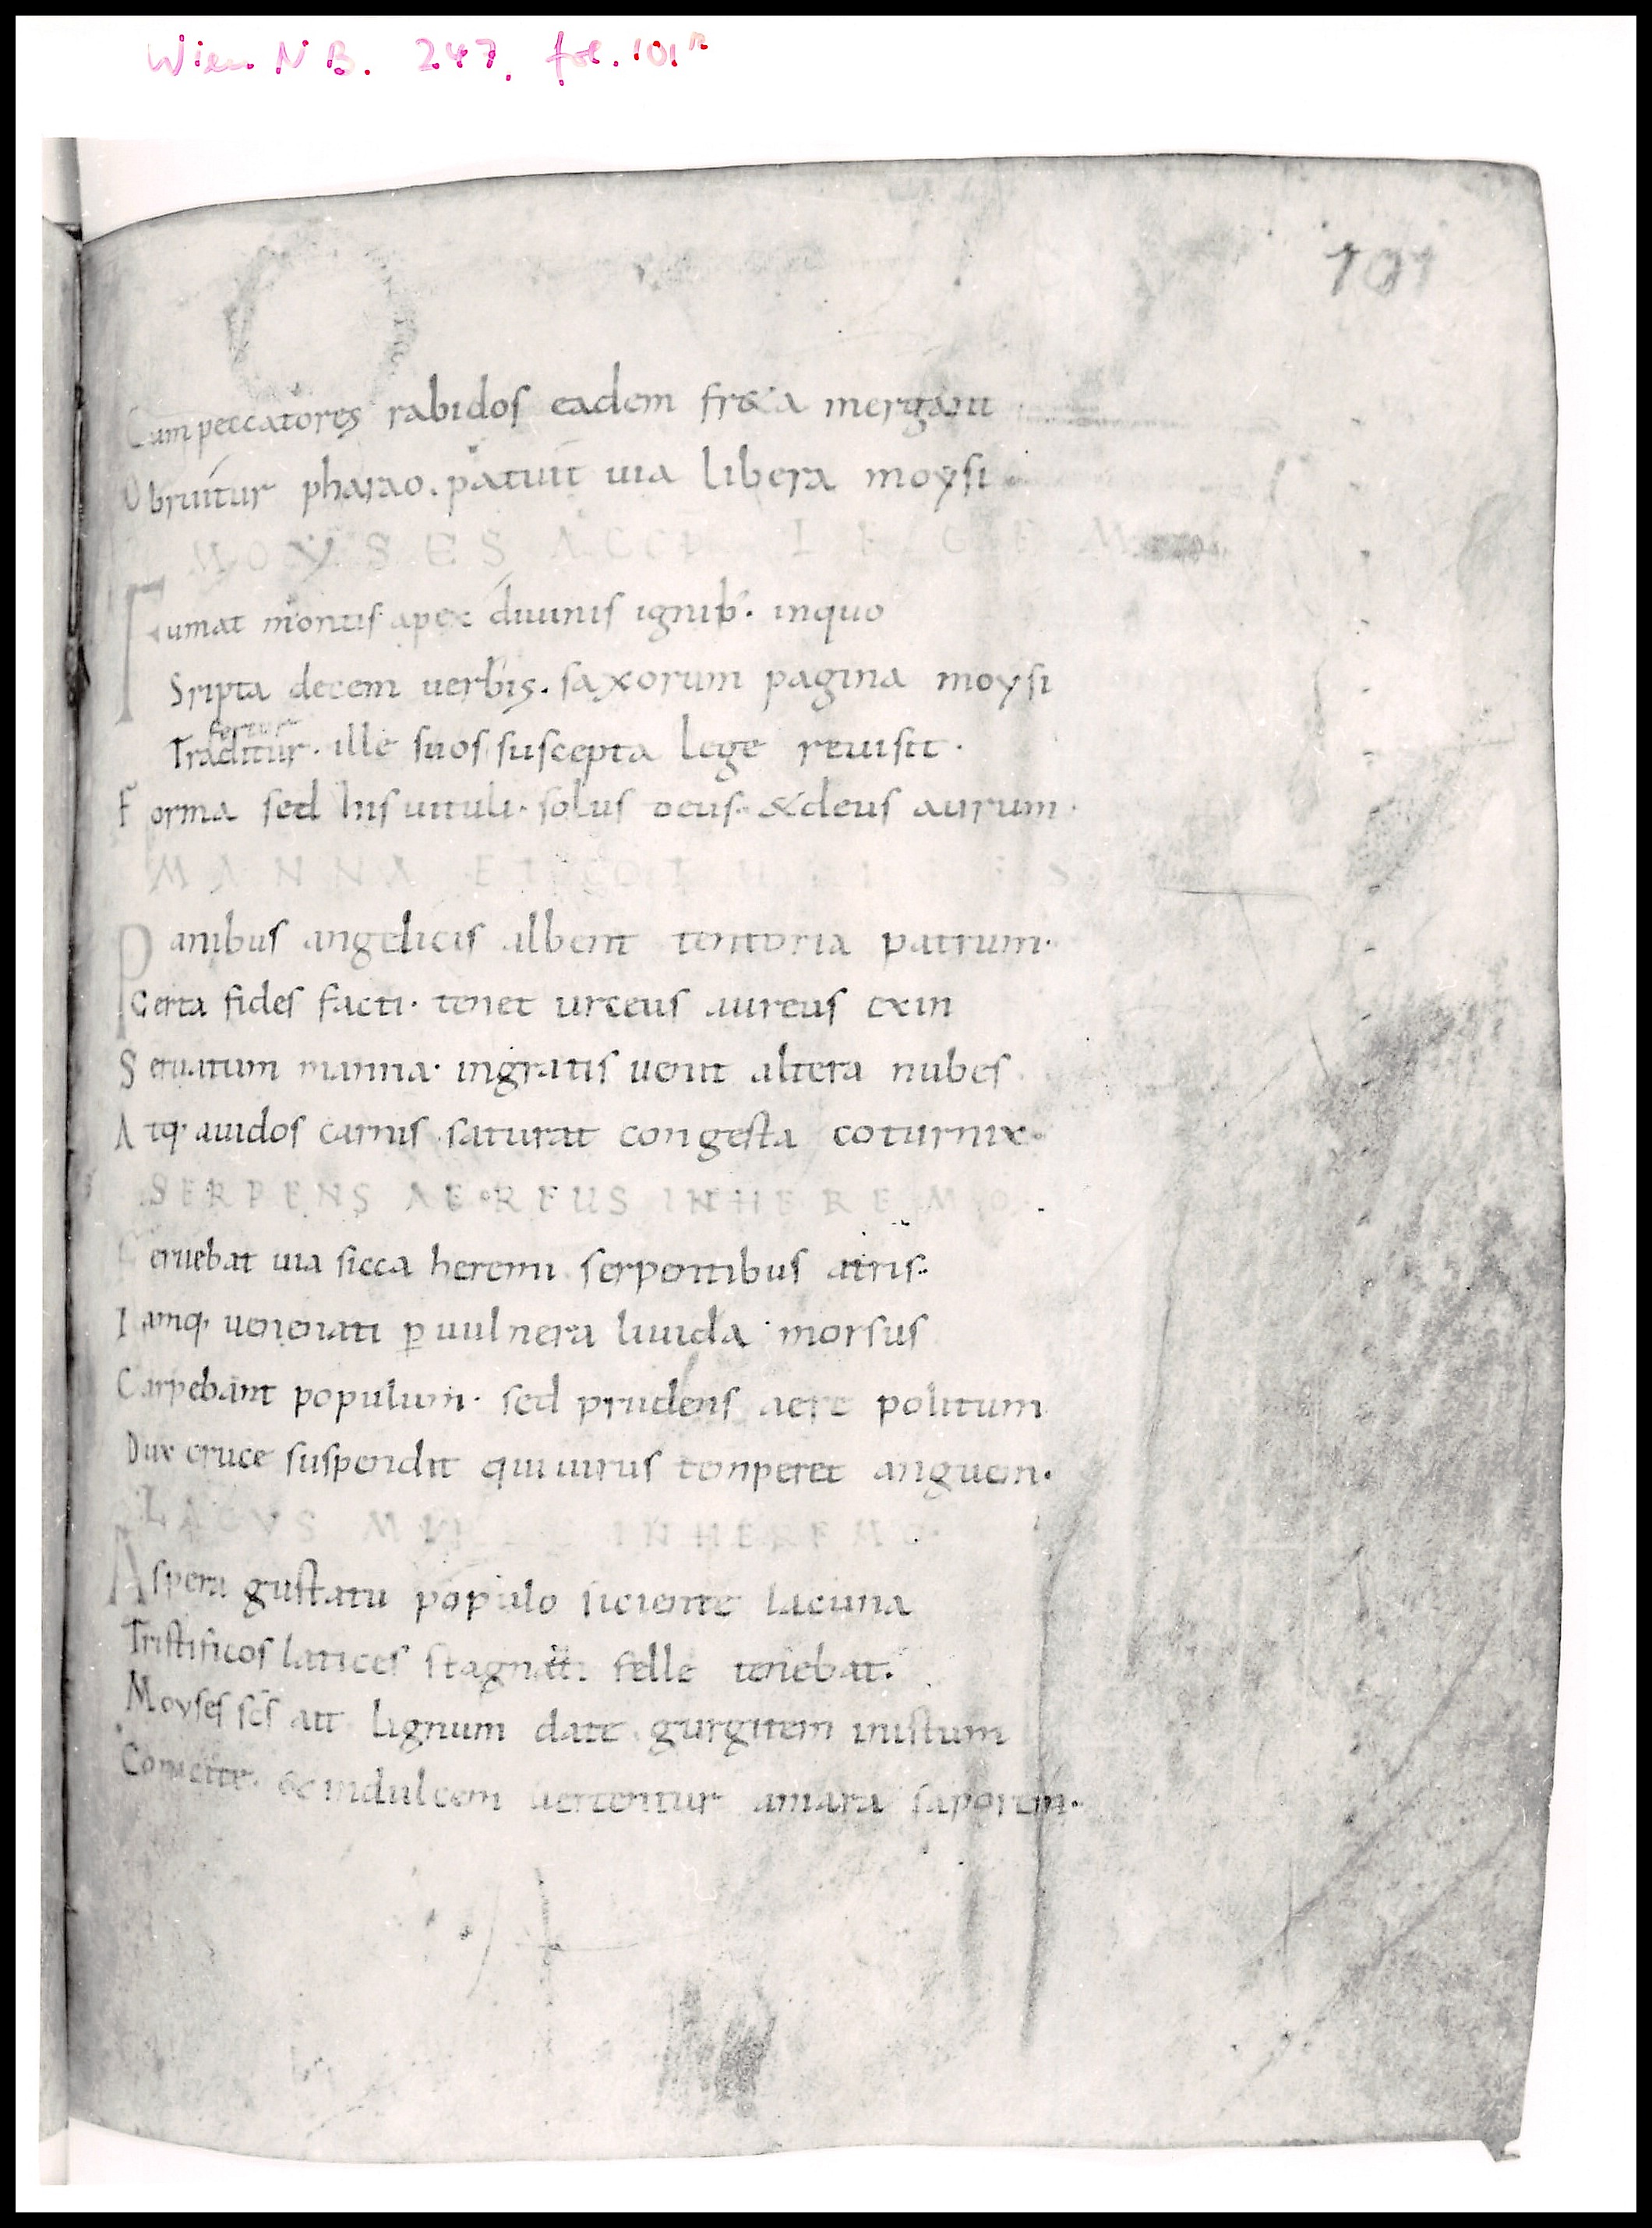 Wien NB. 247. fol. 101r
101
Cum peccatores rabidos eadem fr&a mergant
Obruitur pharao. patuit uia libera moysi
MOYSES ACCP LEGEM
Fumat montis apex diuinis ignib·. inquo
Sripta decem uerbis. saxorum pagina moysi
fertur
Traditur. ille suos suscepta lege reuisit.
Forma sed his uituli. solus deus. &deus aurum.
MANNA ET COT
Panibus angelicis albent tentoria patrum.
Certa fides facti. tenet urceus aureus exin
Seruatum manna. ingratis uenit altera nubes.
Atq. auidos carnis saturat congesta coturnix.
SERPENS AEREUS INHEREMO.
Feruebat uia sicca heremi serpentibus atris.
Iamq. uenenati p uulnera liuida morsus
Carpebant populum. sed prudens aere politum
Dux cruce suspendit qui uirus tenperet anguem.
LACVS INHEREMO.
Aspera gustatu populo siciente lacuna
Tristificos latices stagnati felle tenebat.
Moyses scs ait lignum date. gurgitem inistum
Conicite. & indulcem uertentur amara saporem.